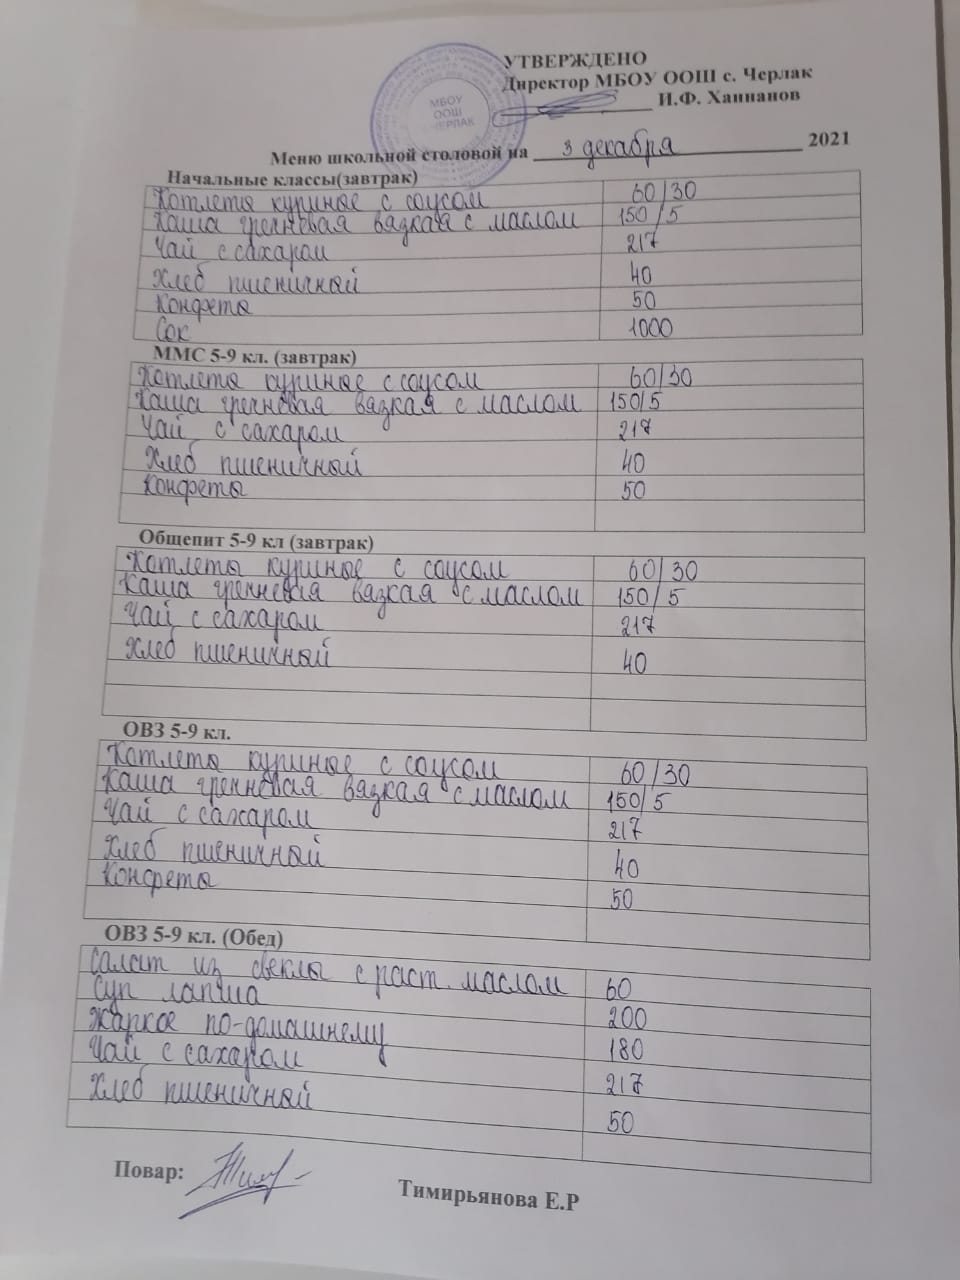 УТВЕРЖДЕНО
Директор МБОУ ООШ с. Черлак
И.Ф. Ханнанов
МБОУ
ООШ
ЧЕРЛАК
Меню школьной столовой на 3 декабря 2021
Начальные классы(завтрак)
Котлеты куриные с соусом 60/30
Каша гречневая вязкая с маслом 150/5
Чай с сахаром 217
Хлеб пшеничный 40
Конфеты 50
Сок 1000
ММС 5-9 кл. (завтрак)
Котлеты куриные с соусом 60/30
Каша гречневая вязкая с маслом 150/5
Чай с сахаром 217
Хлеб пшеничный 40
Конфеты 50
Общепит 5-9 кл (завтрак)
Котлеты куриные с соусом 60/30
Каша гречневая вязкая с маслом 150/5
Чай с сахаром 217
Хлеб пшеничный 40
ОВЗ 5-9 кл.
Котлеты куриные с соусом 60/30
Каша гречневая вязкая с маслом 150/5
Чай с сахаром 217
Хлеб пшеничный 40
Конфеты 50
ОВЗ 5-9 кл. (Обед)
Салат из свеклы с раст. маслом 60
Суп лапша 200
Жаркое по-домашнему 180
Чай с сахаром 217
Хлеб пшеничный 50
Повар:
Тимирьянова Е.Р